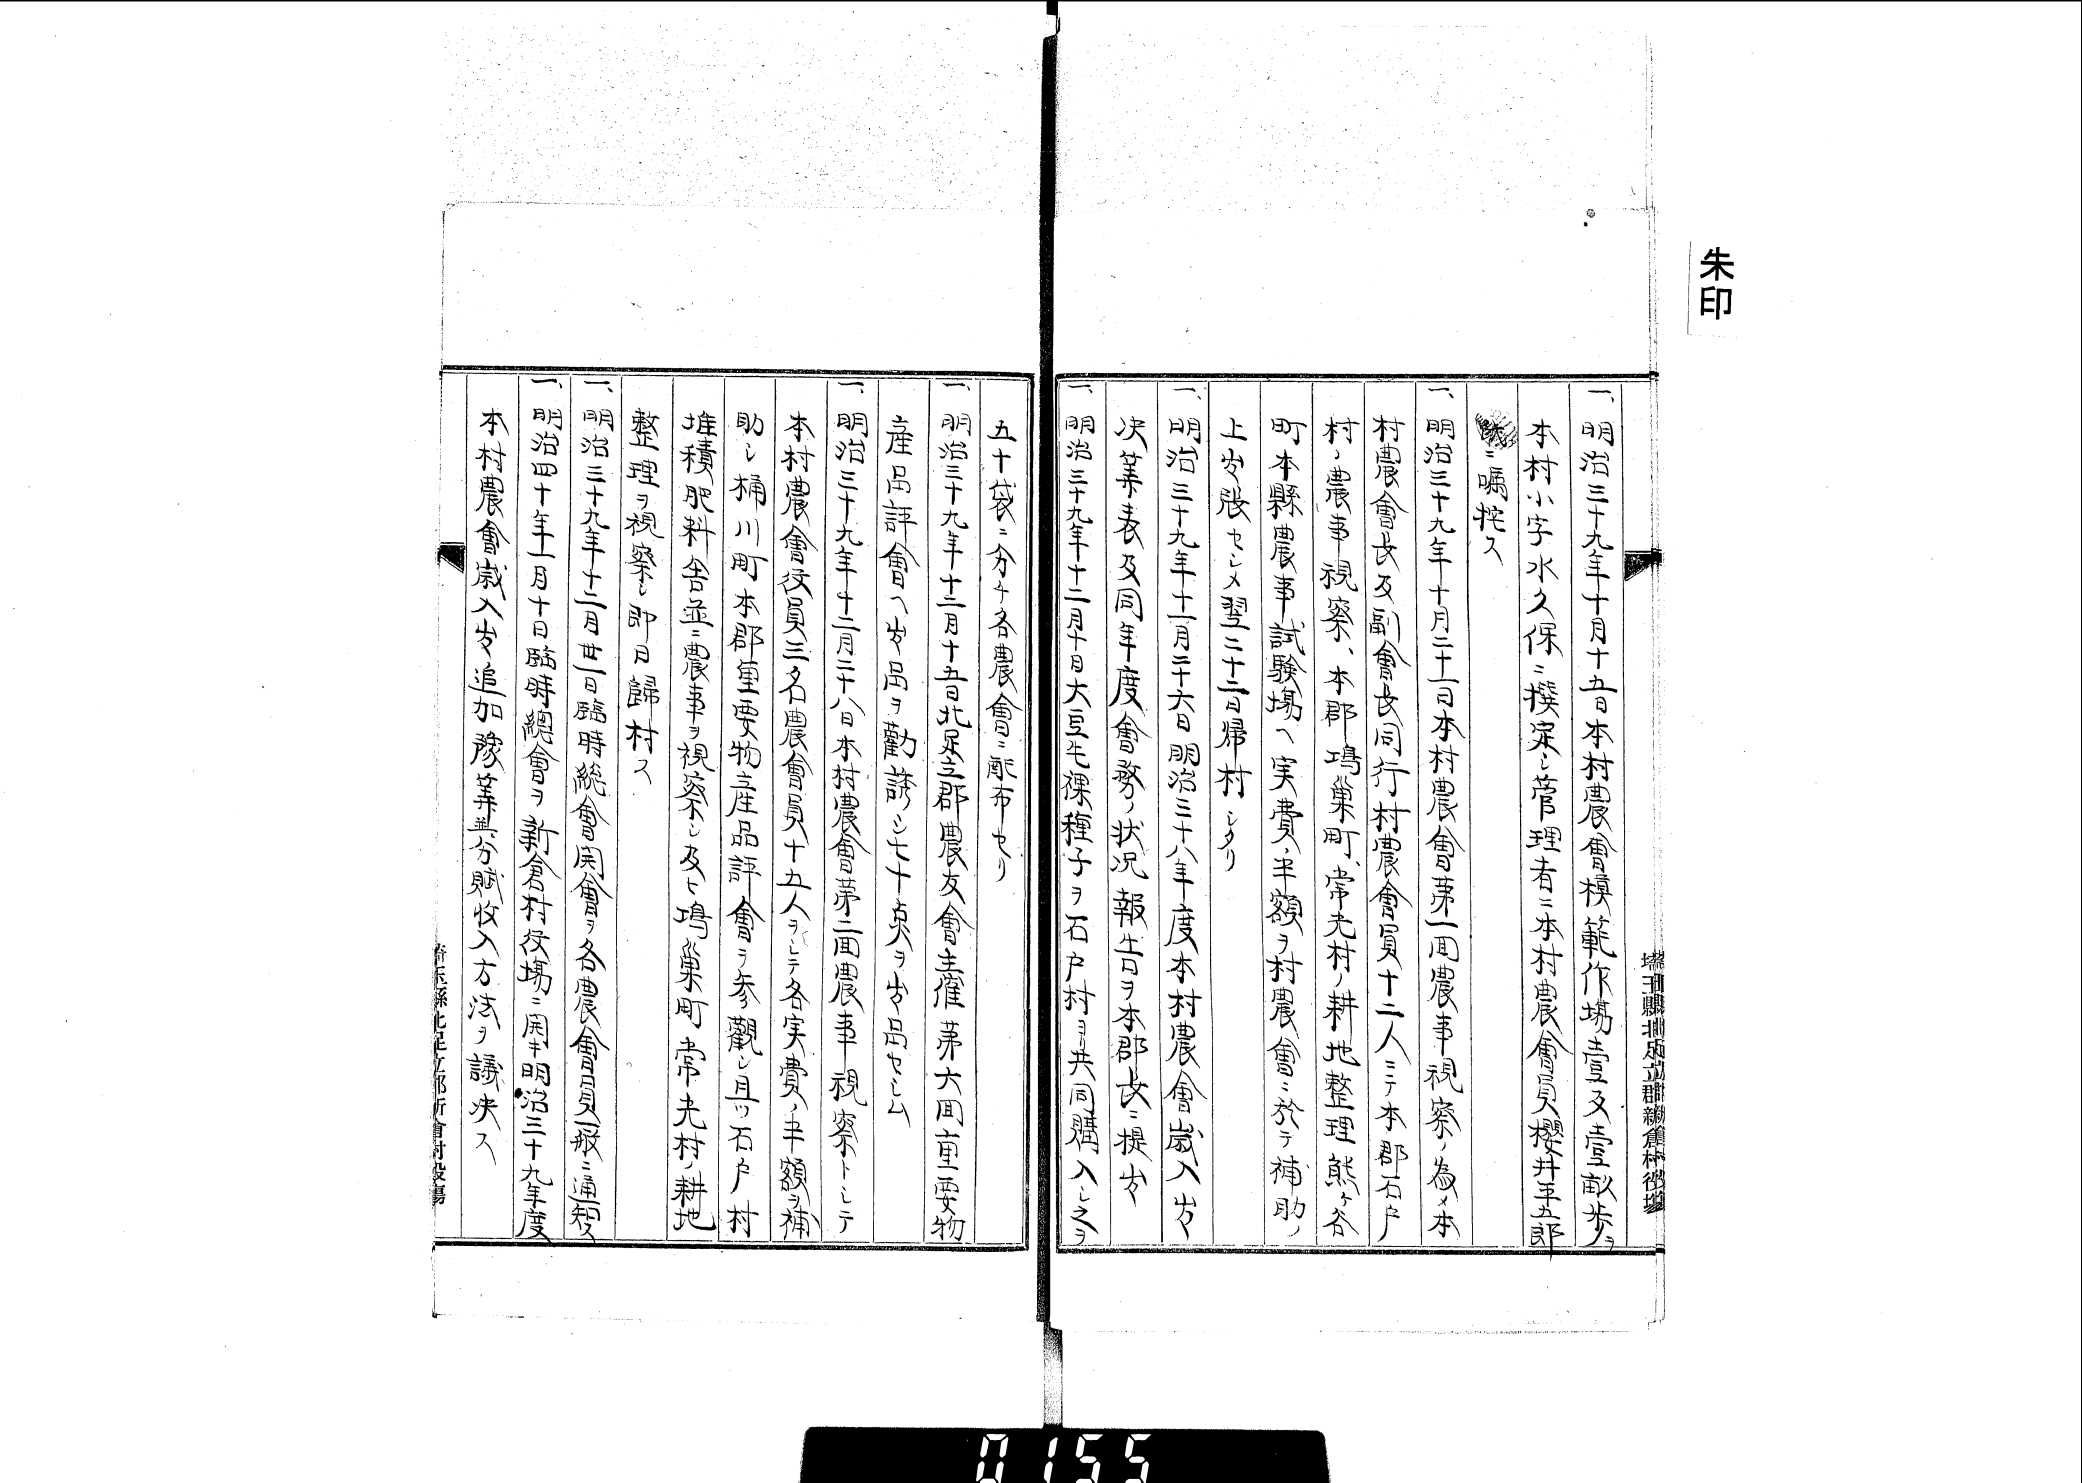 朱印
一、明治三十九年十月十五日本村農會模範作場壹反壹畝歩ヲ
本村小字水久保ニ撰定シ管理者ニ本村農會員櫻井平五郎
ニ嘱托ス
一、明治三十九年十月二十一日本村農會第一囬農事視察ノ為メ本
村農會長及副會長同行村農會員十二人ニテ本郡石戸
村ノ農事視察、本郡鴻巣町、常光村ノ耕地整理熊ヶ谷
町本縣農事試験場ヘ実費ノ半額ヲ村農會ニ於テ補助ノ
上出張セシメ翌二十二日帰村シタリ
一、明治三十九年十一月二十六日明治三十八年度本村農會歳入出
决算表及同年度會務ノ状况報告ヲ本郡長ニ提出
一、明治三十九年十二月十日大豆毛裸種子ヲ石戸村ヨリ共同購入シ之ヲ
五十袋ニ分チ各農會ニ配布セリ
一、明治三十九年十二月十五日北足立郡農友會主催第六囬重要物
産品評會ヘ出品ヲ勸誘シ七十点ヲ出品セシム
一、明治三十九年十二月二十八日本村農會第二囬農事視察トシテ
本村農會役員三名農會員十五人ヲシテ各実費ノ半額ヲ補
助シ桶川町本郡重要物産品評會ヲ参觀シ且ツ石戸村
堆積肥料舎並ニ農事ヲ視察シ及ヒ鴻巣町常光村ノ耕地
整理ヲ視察シ即日歸村ス
一、明治三十九年十二月廿一日臨時総會開會ヲ各農會員一般ニ通知ス
一、明治四十年一月十日臨時總會ヲ新倉村役場ニ開キ明治三十九年度
本村農會歳入出追加豫算並分賦收入方法ヲ議决ス
埼玉縣北足立郡新倉村役場
0155